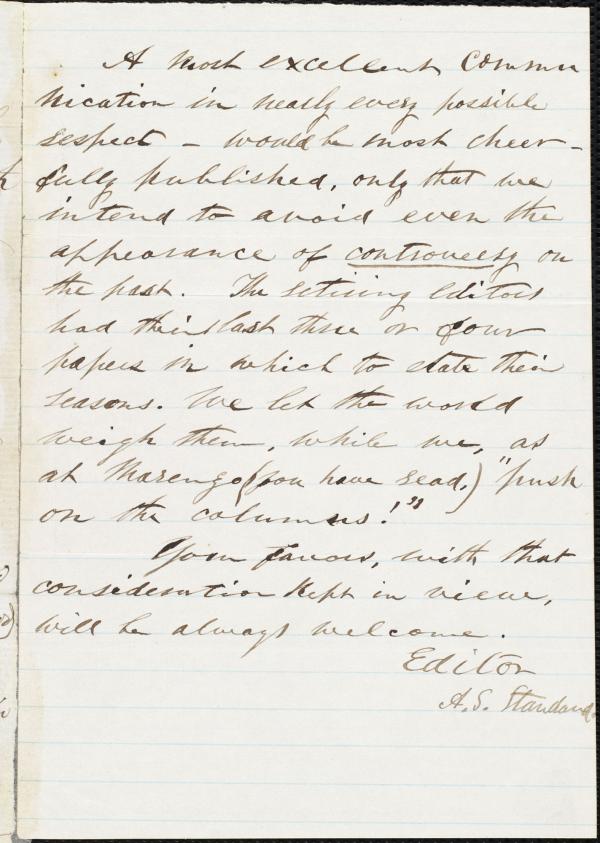 A most excellent commu
nication in nearly every possible
respect - would be most cheer-
fully published, only that we
intend to avoid even the
appearance of controversy on
the past. The retiring editors
had their last three or four
papers in which to state their
reasons. We let the world
weigh them, while we, as
at Marengo (you have read,) "push
on the columns!"
Your favors, with that
consideration kept in view,
will be always welcome.
Editor
A. S. Standard